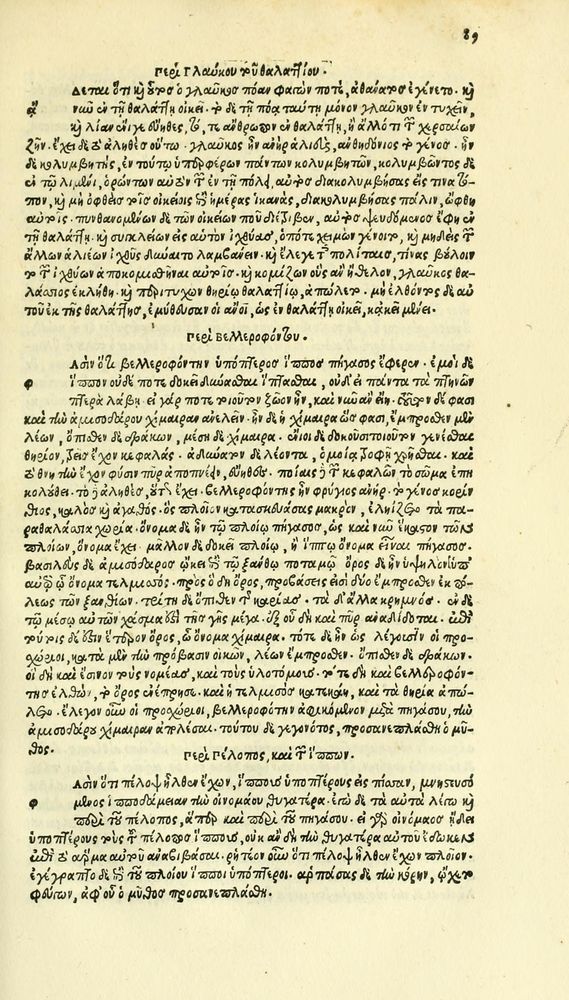 89
Περὶ Γλαύκου τοῦ θαλαττίου.
Δεται ὅτι καὶ οὗτος ὁ γλαῦκος πόαν φαγών ποτε, ἀθάνατος ἐγένετο. καὶ
ᾄ νῦν ἐν τῇ θαλάττῃ οἰκεῖ. τὸ δὲ τῇ πόᾳ ταύτῃ μόνον γλαῦκον ἐντυχεῖν,
καὶ λίαν εὔηθες, τό, τε ἄνθρωπον ἐν θαλάττῃ, ἢ ἄλλό τι τῶν χερσαίων
ζῆν. ἔχει δὲ τὸ ἀληθὲς οὕτω. γλαῦκος ἦν ἀνὴρ ἁλιεὺς, ἀνθηδόνιος τὸ γένος. ἦν
δὲ κολυμβητὴς, ἐν τούτῳ ὑπερφέρων πάντων κολυμβητῶν, κολυμβῶντος δὲ
ἐν τῷ λιμένι, ὁρώντων αὐτὸν τῶν ἐν τῇ πόλει, αὐτὸς διακολυμβήσας εἴς τινα τό-
πον, καὶ μὴ ὀφθεὶς τοῖς οἰκείοις ἐπὶ ἡμέρας ἱκανὰς, διακολυμβήσας πάλιν, ὤφθη
αὐτοῖς. πυνθανομένων δὲ τῶν οἰκείων ποῦ διέτριβεν, αὐτὸς ψευδόμενος ἔφη ἐν
τῇ θαλάττῃ. καὶ συγκλείων εἰς αὑτὸν ἰχθύας, ὁπότε χειμὼν γένοιτο, καὶ μηδεὶς τῶν
ἄλλων ἁλιέων ἰχθῦς δύναιτο λαμβάνειν. καὶ ἔλεγε τοῖς πολίταις, τίνας βούλοιν
το τῶν ἰχθύων ἀποκομισθῆναι αὐτοῖς. καὶ κομίζων οὓς ἂν ἤθελον, γλαῦκος θα-
λάσσιος ἐκλήθη. καὶ περιτυχὼν θηρίῳ θαλαττίῳ, ἀπώλετο. μὴ ἐλθόντος δὲ αὐ
τοῦ ἐκ τῆς θαλάττης, ἐμύθευσαν οἱ ἄνθρωποι, ὡς ἐν θαλάττῃ οἰκεῖ, κἀκεῖ μένει.
Περὶ Βελλεροφόντου.
Ασὶν ὅτι βελλεροφόντην ὑπόπτερος ἵππος πήγασος ἔφερεν. ἐμοὶ δὲ
φ ἵππον οὐδέ ποτε δοκεῖ δύνασθαι ἵπτασθαι, οὐδ' εἰ πάντα τὰ πτηνῶν
πτερὰ λάβῃ. εἰ γάρ ποτε τοιοῦτον ζῶον ἦν, καὶ νῦν ἂν εἴη. τοῦτον δέ φασι
καὶ τὴν ἀμισοδάρου χίμαιραν ἀνελεῖν. ἦν δὲ ἡ χίμαιρα ὥς φασι, ἔμπροσθεν μὲν
λέων, ὄπισθεν δὲ δράκων, μέση δὲ χίμαιρα. ἔνιοι δὲ δοκοῦσι τοιοῦτον γενέσθαι
θηρίον, τρεῖς ἔχον κεφαλάς. ἀδύνατον δὲ λέοντα, ὁμοίᾳ τροφῇ χρῆσθαι. καὶ
τὸ θνητὴν ἔχον φύσιν πῦρ ἀποπνεῖν, εὔηθες. ποίᾳ δὲ τῶν κεφαλῶν τὸ σῶμα ἐπη
κολούθει. τὸ δὲ ἀληθὲς, οὕτως ἔχει. βελλεροφόντης ἦν φρύγιος ἀνὴρ. τὸ γένος κορίν
θιος, καλὸς καὶ ἀγαθός. ὃς πλοῖον κατασκευάσας μακρὸν, ἐληΐζετο τὰ πα-
ραθαλάσσια χωρία. ὄνομα δὲ ἦν τῷ πλοίῳ πήγασος, ὡς καὶ νῦν ἕκαστον τῶν
πλοίων, ὄνομα ἔχει. μᾶλλον δὲ δοκεῖ πλοίῳ, ἢ ἵππῳ ὄνομα εἶναι πήγασος.
βασιλεὺς δὲ ἀμισόδαρος ᾤκει ἐπὶ τῷ ξάνθῳ ποταμῷ ὄρος δὲ ἦν ὑψηλὸν ὑπ'
αὐτῷ ᾧ ὄνομα τελμισός. πρὸς ὃ δὴ ὄρος, προσβάσεις εἰσὶ δύο ἔμπροσθεν ἐκ πό-
λεως τῶν ξανθίων. τρίτη δὲ ὄπισθεν τῆς καρίας. τὰ δ' ἄλλα κρημνός. ἐν δὲ
τῷ μέσῳ αὐτῶν χάσμα ἐστὶ τῆς γῆς μέγα. ἐξ οὗ δὴ καὶ πῦρ ἀναδίδοται. ἐπὶ
τούτοις δέ ἐστιν ἕτερον ὄρος, ᾧ ὄνομα χίμαιρα. τότε δὲ ἦν ὡς λέγουσιν οἱ προ-
χώριοι, κατὰ μὲν τὴν πρόσβασιν οἰκῶν, λέων ἔμπροσθεν. ὄπισθεν δὲ δράκων.
οἳ δὴ καὶ ἐσίνοντο τοὺς νομέας, καὶ τοὺς ὑλοτόμους. τότε δὴ καὶ βελλεροφόν-
της ἐλθὼν, τὸ ὄρος ἐνέπρησε. καὶ ἡ τελμισὸς κατεκάη, καὶ τὰ θηρία ἀπώ-
λετο. ἔλεγον οὖν οἱ προχώριοι, βελλεροφόντην ἀφικόμενον μετὰ πηγάσου, τὴν
ἀμισοδάρου χίμαιραν ἀπολέσαι. τούτου δὲ γεγονότος, προσανεπλάσθη ὁ μῦ-
θος.
Περὶ Πέλοπος, καὶ τῶν ἵππων.
Ασὶν ὅτι πέλοψ ἦλθεν ἔχων, ἵππους ὑποπτέρους εἰς πίσαν, μνηστευσό
φ μενος ἱπποδάμειαν τὴν οἰνομάου θυγατέρα. ἐγὼ δὲ τὰ αὐτὰ λέγω καὶ
περὶ τοῦ πέλοπος, ἅπερ καὶ περὶ τοῦ πηγάσου. εἰ γὰρ οἰνόμαος ᾔδει
ὑποπτέρους τοὺς τοῦ πέλοπος ἵππους, οὐκ ἂν δὴ τὴν θυγατέρα αὐτοῦ ἔδωκεν
ἐπὶ τὸ ἅρμα αὐτοῦ ἀναβιβάσαι. ῥητέον οὖν ὅτι πέλοψ ἦλθεν ἔχων πλοῖον.
ἐγέγραπτο δὲ ἐπὶ τοῦ πλοίου ἵπποι ὑπόπτεροι. ἁρπάσας δὲ τὴν κόρην, ᾤχετο
φεύγων, ἀφ' οὗ ὁ μῦθος προσανεπλάσθη.